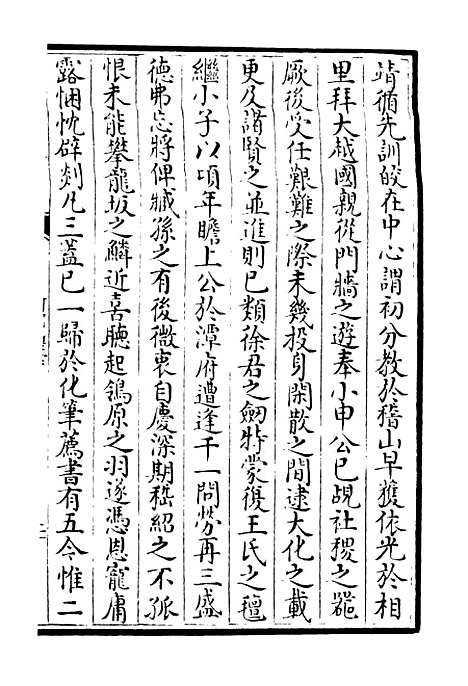 靖循先訓皎在中心謂初分教於稽山早獲依光於相
里拜大越國親從門牆之遊奉小申公已覘社稷之器
厥後受任艱難之際未幾投身閑散之間逮大化之載
更及諸賢之並進則已類徐君之劒特蒙復王氏之氊
繼小子以頃年瞻上公於潭府遭逢千一問勞再三盛
德弗忘將俾臧孫之有後微衷自慶深期嵇紹之不孤
恨未能攀龍坂之鱗近喜聽起鴒原之羽遂憑恩寵庸
露悃忱辟剡凡三蓋已一歸於化筆薦書有五今惟二